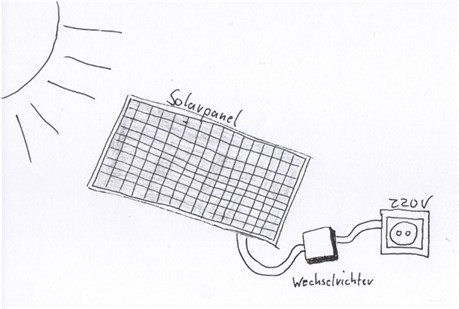 Solarpanel
220V
Wechselrichter